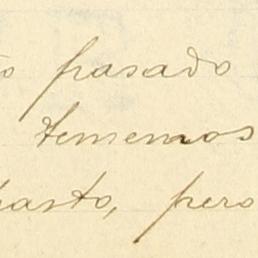 o pasado
tememos
asto, pero